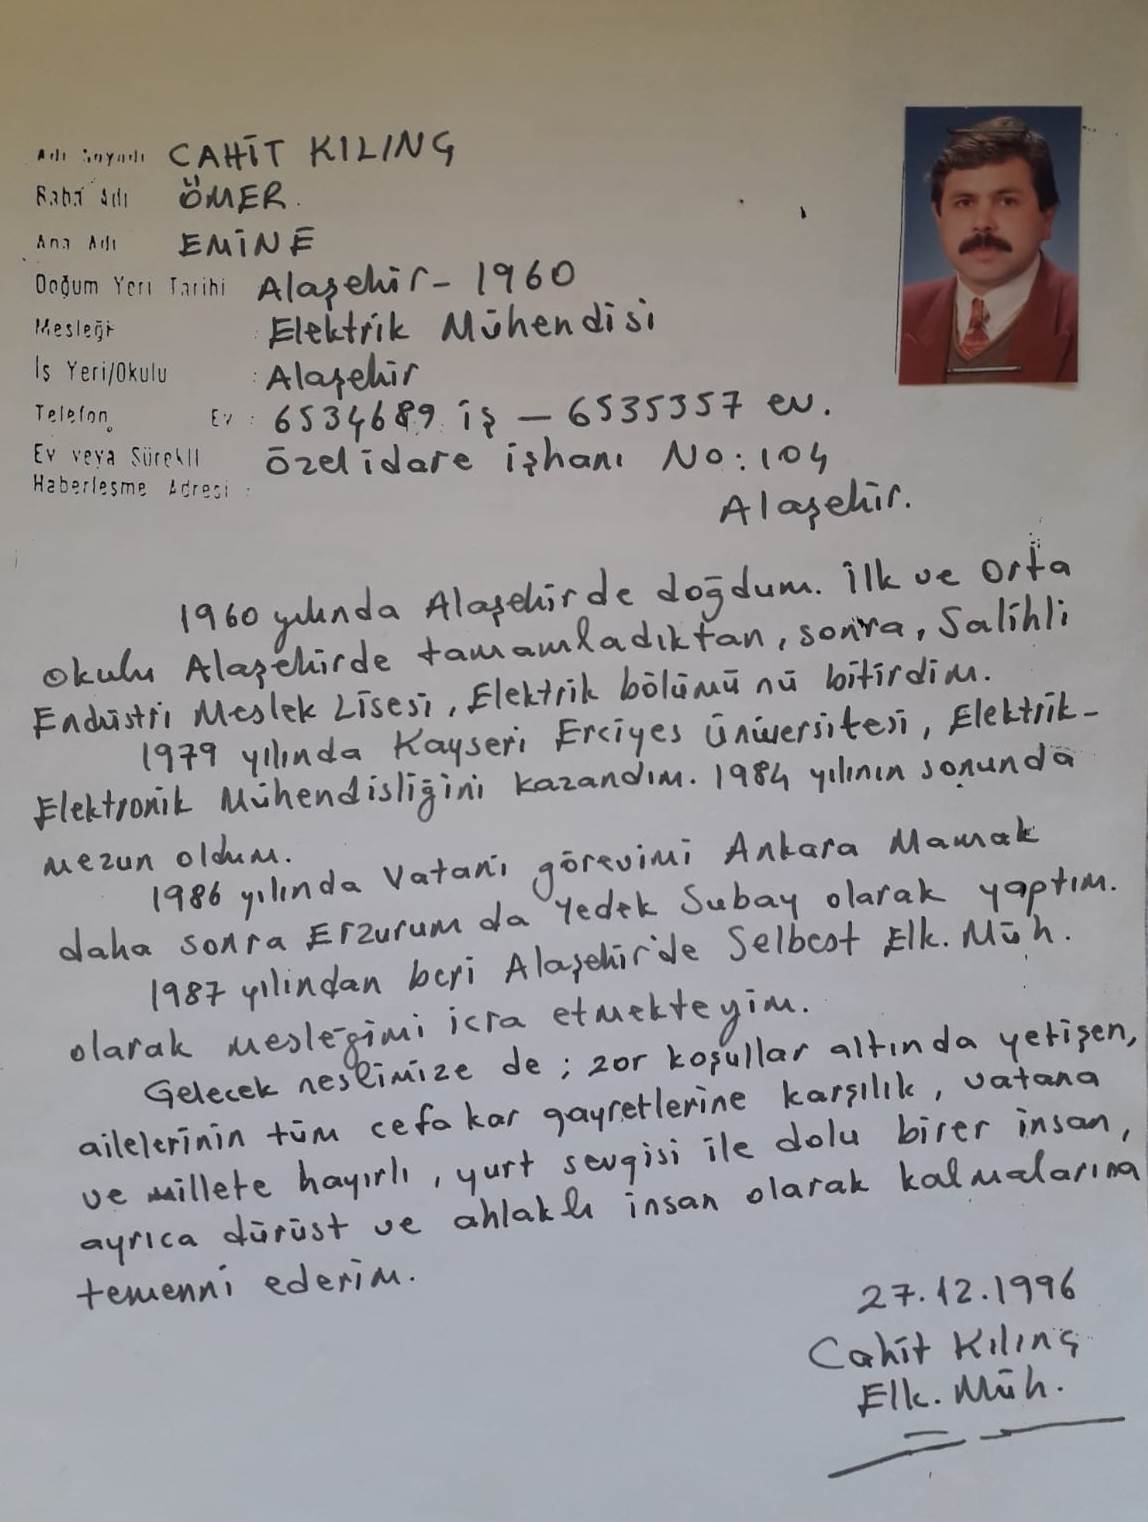 Adı Soyadı CAHİT KILINÇ
Baba Adı ÖMER.
Ana Adı EMİNE
Doğum Yeri Tarihi Alaşehir - 1960
Mesleği : Elektrik Mühendisi
İş Yeri/Okulu : Alaşehir
Telefon Ev : 6534689 iş - 6535357 ev.
Ev veya Sürekli Özel idare işhanı No: 104
Haberleşme Adresi :
Alaşehir.
1960 yılında Alaşehirde doğdum. İlk ve orta
okulu Alaşehirde tamamladıktan, sonra, Salihli
Endüstri Meslek Lisesi, Elektrik bölümü nü bitirdim.
1979 yılında Kayseri Erciyes Üniversitesi, Elektrik-
Elektronik Mühendisliğini kazandım. 1984 yılının sonunda
mezun oldum.
1986 yılında Vatani görevimi Ankara Mamak
daha sonra Erzurum da Yedek Subay olarak yaptım.
1987 yılından beri Alaşehir'de Selbest Elk. Müh.
olarak mesleğimi icra etmekteyim.
Gelecek neslimize de ; zor koşullar altında yetişen,
ailelerinin tüm cefa kar gayretlerine karşılık, vatana
ve millete hayırlı, yurt sevgisi ile dolu birer insan,
ayrıca dürüst ve ahlaklı insan olarak kalmalarına
temenni ederim.
27.12.1996
Cahit Kılınç
Elk. Müh.